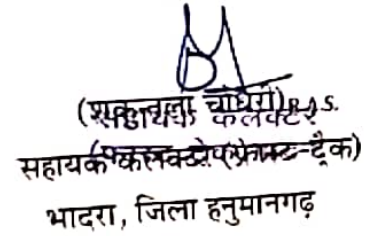 (शकुन्तला चौधरी) R.A.S.
सहायक कलक्टर
सहायक कलक्टर (फास्ट-ट्रैक)
भादरा, जिला हनुमानगढ़